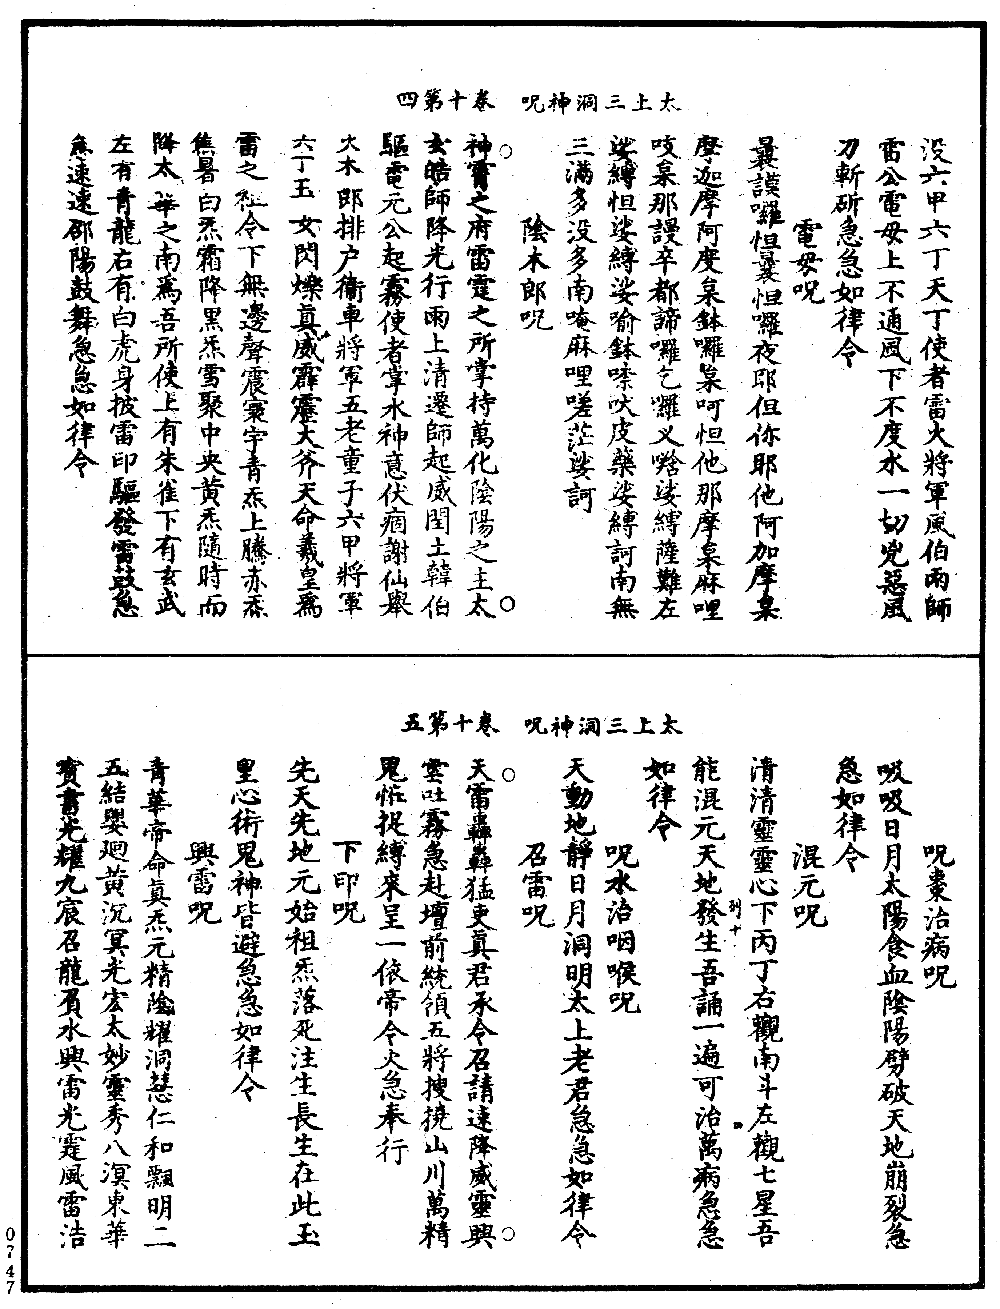 太上三洞神呪　卷十第四
没六甲六丁天丁使者雷火將軍風伯雨師
雷公電母上不通風下不度水一切兇惡風
刀斬斫急急如律令
電母呪
曩謨囉怛曩怛囉夜耶但你耶他阿加摩杲
摩迦摩阿度杲鉢囉杲呵怛他那摩杲麻哩
吱杲那謾卒都諦囉乞囉义㗨娑縛薩難左
娑縛怛娑縛娑喻鉢㗫吠皮蘗娑縛訶南無
三滿多没多南唵麻哩嗟茫娑訶
陰木郎呪
神霄之府雷霆之所掌持萬化陰陽之主太
玄皓師降光行雨上清遷師起威閏土韓伯
驅電元公起霧使者掌水神意伏痼謝仙舉
火木郎排户衞車將軍五老童子六甲將軍
六丁玉女閃爍真威霹靂大斧天命羲皇爲
雷之社令下無邊聲震寰宇青炁上騰赤炁
焦暑白炁霜降黑炁雪聚中央黄炁隨時而
降太華之南爲吾所使上有朱雀下有玄武
左有青龍右有白虎身披雷印驅發雷鼓急
急速速邵陽鼓舞急急如律令
太上三洞神呪　卷十第五
呪棗治病呪
吸吸日月太陽食血陰陽劈破天地崩裂急
急如律令
混元呪
清清靈靈心下丙丁右觀南斗左觀七星吾
能混元天地發生吾誦一遍可治萬病急急
如律令
呪水治咽喉呪
天動地靜日月洞明太上老君急急如律令
召雷呪
天雷轟轟猛吏真君承令召請速降威靈興
雲吐霧急赴壇前統領五將搜撓山川萬精
鬼怪捉縛來呈一依帝令火急奉行
下印呪
先天先地元始祖炁落死注生長生在此玉
皇心術鬼神皆避急急如律令
興雷呪
青華帝命真炁元精陰耀洞慧仁和飄明二
五結嬰廻黄沉冥光宏太妙靈秀八溟東華
寳書光耀九宸召龍負水興雷光霆風雷浩
0747